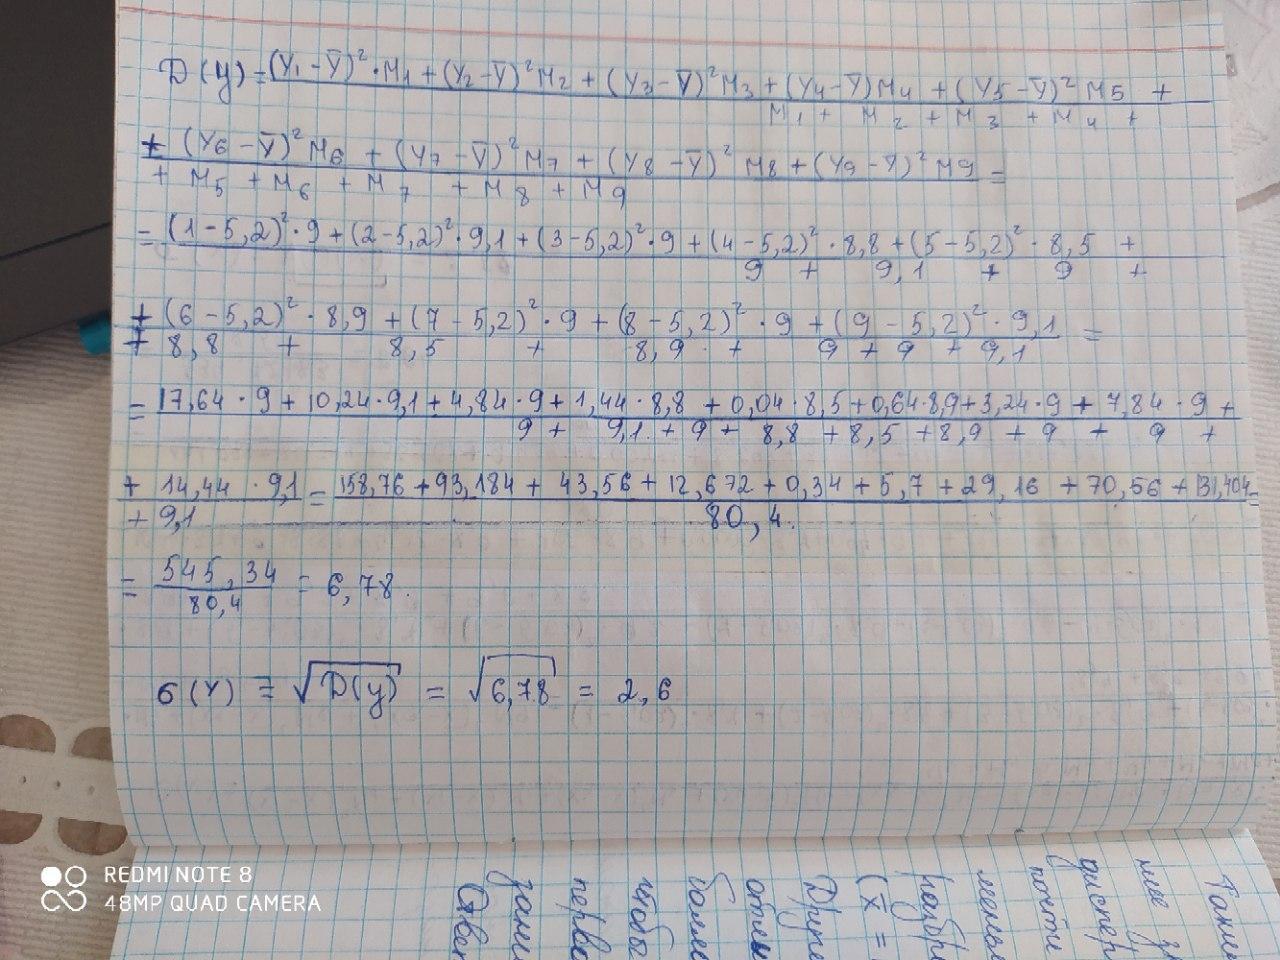 D(y)=(Y1-Y̅)²·M1+(Y2-Y̅)²M2+(Y3-Y̅)²M3+(Y4-Y̅)M4+(Y5-Y̅)²M5+
M1+M2+M3+M4+
+(Y6-Y̅)²M6+(Y7-Y̅)²M7+(Y8-Y̅)²M8+(Y9-Y̅)²M9=
+M5+M6+M7+M8+M9
=(1-5,2)²·9+(2-5,2)²·9,1+(3-5,2)²·9+(4-5,2)²·8,8+(5-5,2)²·8,5+
9+9,1+9+
+(6-5,2)²·8,9+(7-5,2)²·9+(8-5,2)²·9+(9-5,2)²·9,1=
+8,8+8,5+8,9+9+9+9,1
=17,64·9+10,24·9,1+4,84·9+1,44·8,8+0,04·8,5+0,64·8,9+3,24·9+7,84·9+
9+9,1+9+8,8+8,5+8,9+9+9+
+14,44·9,1=158,76+93,184+43,56+12,672+0,34+5,7+29,16+70,56+131,404=
+9,1 80,4.
=545,34=6,78.
80,4
б(Y)=√D(y)=√6,78=2,6
REDMI NOTE 8
48MP QUAD CAMERA